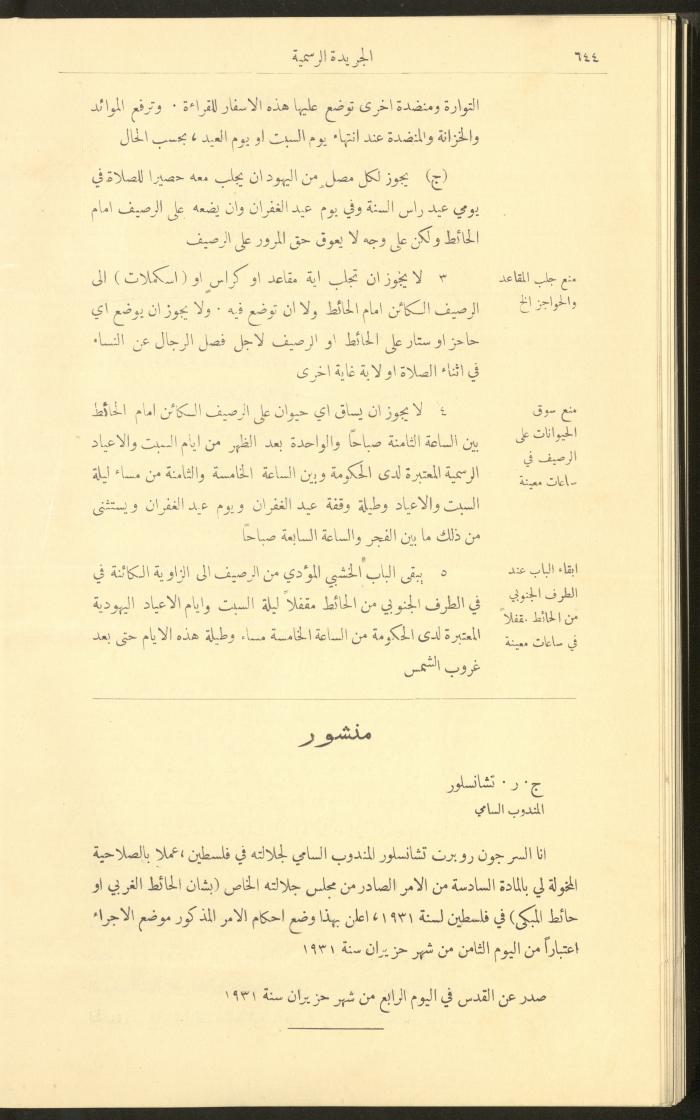 ٦٤٤
الجريدة الرسمية
التوارة ومنضدة اخرى توضع عليها هذه الاسفار للقراءة . وترفع الموائد
والخزانة والمنضدة عند انتهاء يوم السبت او يوم العيد ، بحسب الحال
(ج) يجوز لكل مصل من اليهود ان يجلب معه حصيرا للصلاة في
يومي عيد راس السنة وفي يوم عيد الغفران وان يضعه على الرصيف امام
الحائط ولكن على وجه لا يعوق حق المرور على الرصيف
منع جلب المقاعد
والحواجز الخ
٣ لا يجوز ان تجلب اية مقاعد او كراس او (اسكملات) الى
الرصيف الكائن امام الحائط ولا ان توضع فيه . ولا يجوز ان يوضع اي
حاجز او ستار على الحائط او الرصيف لاجل فصل الرجال عن النساء
في اثناء الصلاة او لاية غاية اخرى
منع سوق
الحيوانات على
الرصيف في
ساعات معينة
٤ لا يجوز ان يساق اي حيوان على الرصيف الكائن امام الحائط
بين الساعة الثامنة صباحًا والواحدة بعد الظهر من ايام السبت والاعياد
الرسمية المعتبرة لدى الحكومة وبين الساعة الخامسة والثامنة من مساء ليلة
السبت والاعياد وطيلة وقفة عيد الغفران ويوم عيد الغفران ويستثنى
من ذلك ما بين الفجر والساعة السابعة صباحًا
ابقاء الباب عند
الطرف الجنوبي
من الحائط مقفلاً
في ساعات معينة
٥ يبقى الباب الخشبي المؤدي من الرصيف الى الزاوية الكائنة في
في الطرف الجنوبي من الحائط مقفلاً ليلة السبت وايام الاعياد اليهودية
المعتبرة لدى الحكومة من الساعة الخامسة مساء وطيلة هذه الايام حتى بعد
غروب الشمس
منشور
ج. ر. تشانسلور
المندوب السامي
انا السر جون روبرت تشانسلور المندوب السامي لجلالته في فلسطين ، عملا بالصلاحية
المخولة لي بالمادة السادسة من الامر الصادر من مجلس جلالته الخاص (بشان الحائط الغربي او
حائط المبكى) في فلسطين لسنة ١٩٣١ ، اعلن بهذا وضع احكام الامر المذكور موضع الاجراء
اعتباراً من اليوم الثامن من شهر حزيران سنة ١٩٣١
صدر عن القدس في اليوم الرابع من شهر حزيران سنة ١٩٣١